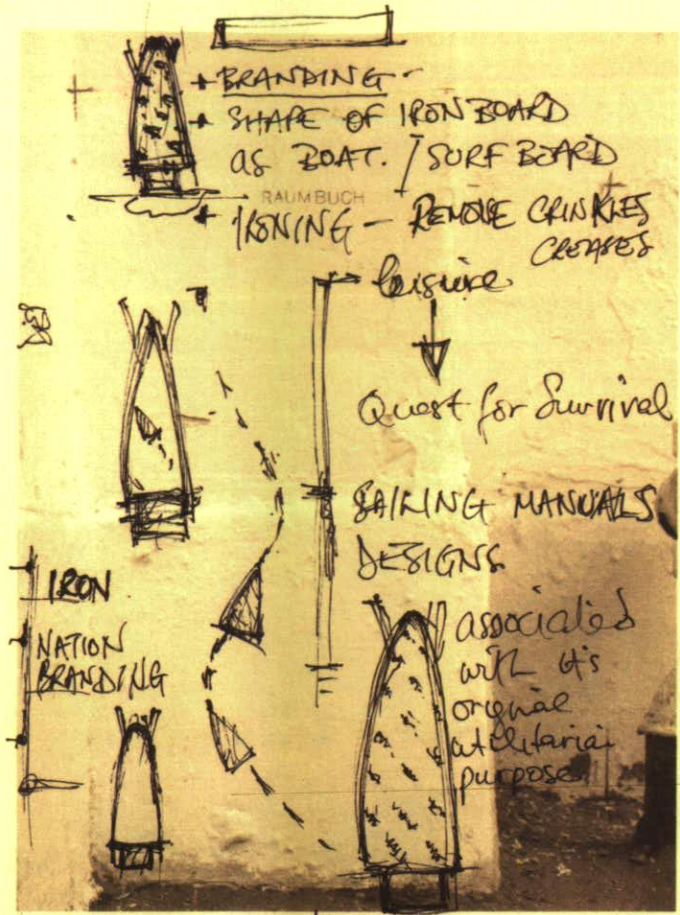 BRANDING -
SHAPE OF IRONBOARD
AS BOAT. / SURFBOARD
RAUMBUCH
IRONING - REMOVE CRINKLES
CREASES
leisure
Quest for Survival
SAILING MANUALS
DESIGNS
IRON
NATION
BRANDING
associated
with it's
original
utilitarian
purpose